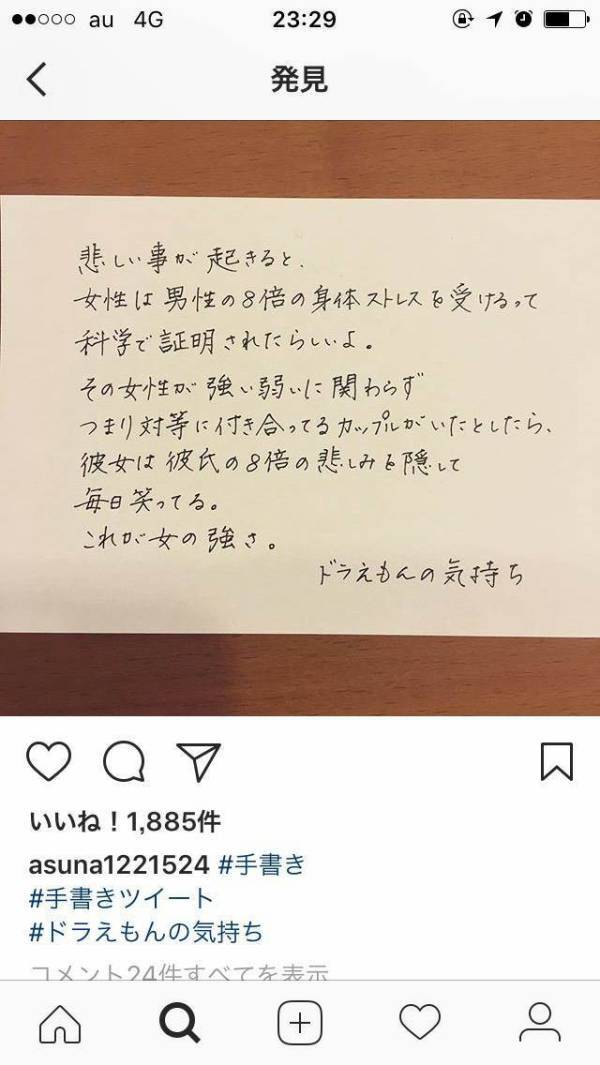 au 4G 23:29
発見
悲しい事が起きると、
女性は男性の8倍の身体ストレスを受けるって
科学で証明されたらしいよ。
その女性が強い弱いに関わらず
つまり対等に付き合ってるカップルがいたとしたら、
彼女は彼氏の8倍の悲しみを隠して
毎日笑ってる。
これが女の強さ。
ドラえもんの気持ち
いいね！1,885件
asuna1221524 #手書き
#手書きツイート
#ドラえもんの気持ち
コメント24件すべてを表示